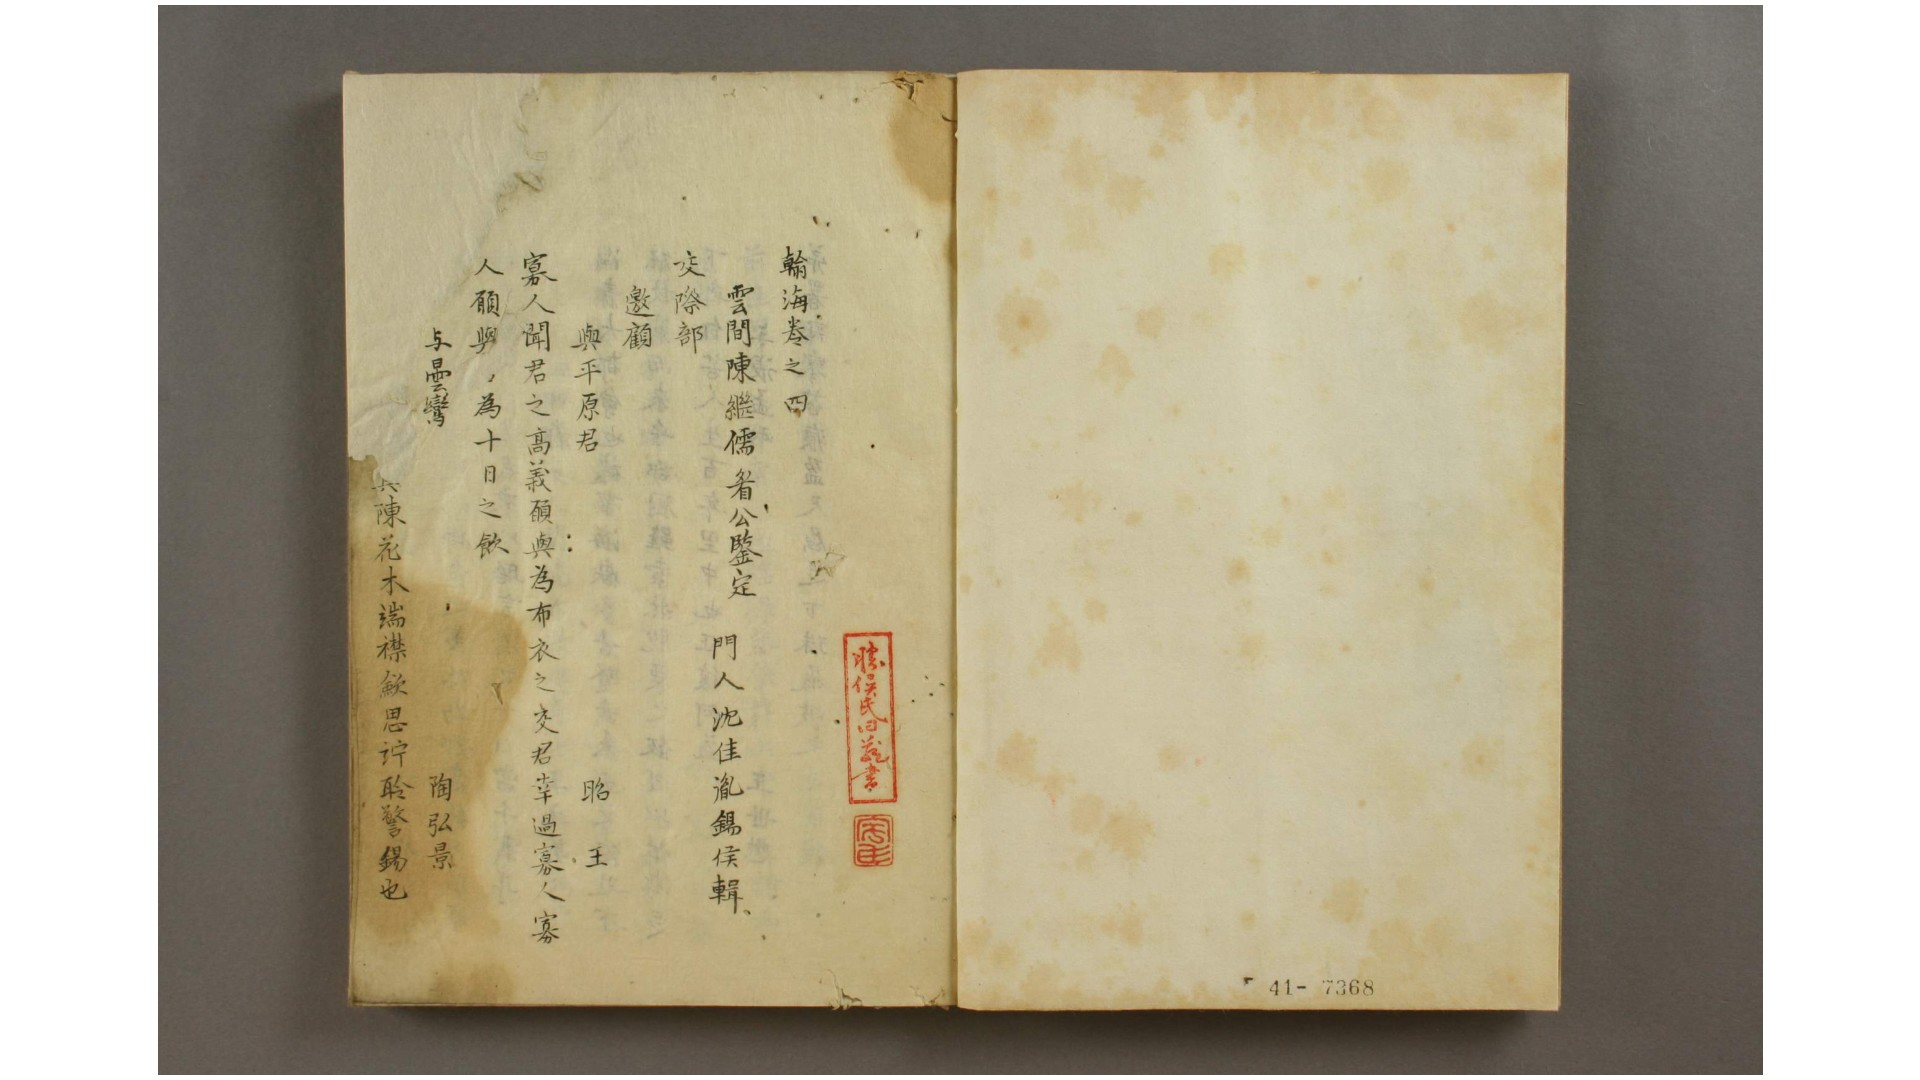 翰海卷之四
雲間陳繼儒眉公鑒定 門人沈佳胤錫侯輯
交際部
邀顧
與平原君 昭王
寡人聞君之高義願與為布衣之交君幸過寡人寡
人願與為十日之飲
与曇鸞 陶弘景
陳花木端襟歛思竚聆警錫也
41- 7368